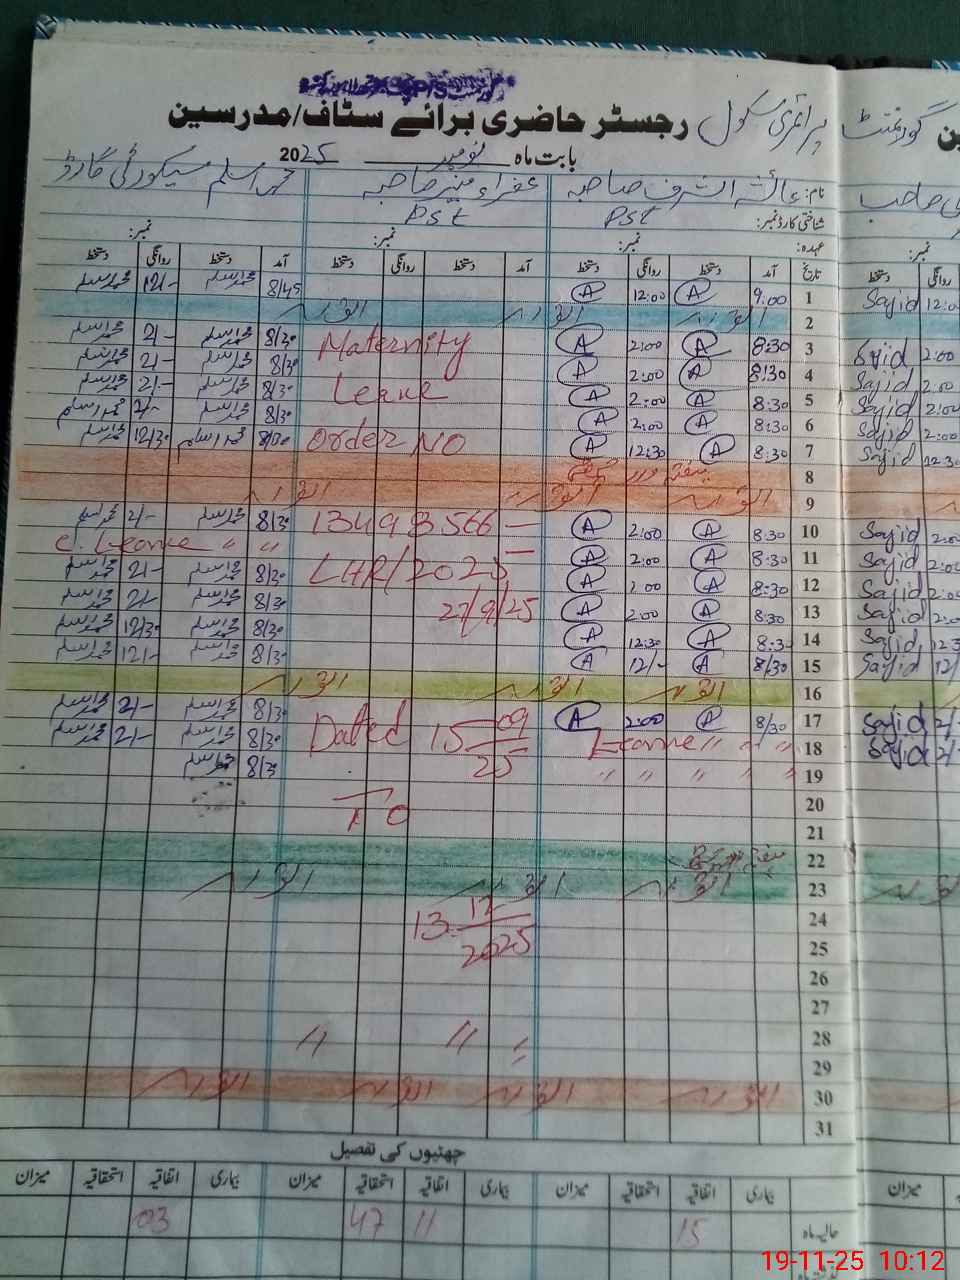 رجسٹر حاضری برائے سٹاف/مدرسین پرائمری سکول گورنمنٹ
بابت ماہ نومبر 2025
نام: عائشہ اشرف صاحبہ عفراء منیر صاحبہ محمد اسلم سیکورٹی گارڈ
شناختی کارڈ نمبر: Pst Pst
عہدہ: نمبر: نمبر: نمبر: نمبر:
تاریخ آمد دستخط روانگی دستخط آمد دستخط روانگی دستخط آمد دستخط روانگی دستخط روانگی دستخط
1 9:00 A 12:00 A 8/45 محمد اسلم 12/- محمد اسلم Sajid 12:0
2 اتوار اتوار اتوار
3 8:30 A 2:00 A Maternity 8/30 محمد اسلم 2/- محمد اسلم Sajid 2:00
4 8:30 A 2:00 A 8/30 محمد اسلم 2/- محمد اسلم Sajid 2:00
5 8:30 A 2:00 A Leave 8/30 محمد اسلم 2/- محمد اسلم Sajid 2:00
6 8:30 A 2:00 A 8/30 محمد اسلم 2/- محمد اسلم Sajid 2:00
7 8:30 A 12:30 A Order NO 8/30 محمد اسلم 12/30 محمد اسلم Sajid 12:30
8
9 اتوار اتوار اتوار
10 8:30 A 2:00 A 13498566 – 8/30 محمد اسلم 2/- محمد اسلم Sajid 2:00
11 8:30 A 2:00 A c. Leave " " Sajid 2:00
12 8:30 A 2:00 A LHR/2025 8/30 محمد اسلم 2/- محمد اسلم Sajid 2:00
13 8:30 A 2:00 A 27/9/25 8/30 محمد اسلم 2/- محمد اسلم Sajid 2:0
14 8:30 A 12:30 A 8/30 محمد اسلم 12/30 محمد اسلم Sajid 12:3
15 8/30 A 12/- A 8/30 محمد اسلم 12/- محمد اسلم Sajid 12/
16 اتوار اتوار اتوار
17 8/30 A 2:00 A Dated 15 09 8/30 محمد اسلم 2/- محمد اسلم Sajid 2/-
18 Leave " " " 25 8/30 محمد اسلم 2/- محمد اسلم Sajid 2/-
19 " " " " " 8/30 محمد اسلم
20 To
21
22
23 اتوار اتوار اتوار
24 13 12
25 2025
26
27
28 " " "
29
30 اتوار اتوار اتوار اتوار
31
چھٹیوں کی تفصیل
بیماری اتفاقیہ استحقاقیہ میزان بیماری اتفاقیہ استحقاقیہ میزان بیماری اتفاقیہ استحقاقیہ میزان میزان
حالیہ ماہ 15 11 47 03
19-11-25 10:12